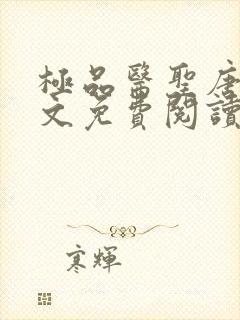 極品醫聖唐
文免費閱讀
寒輝